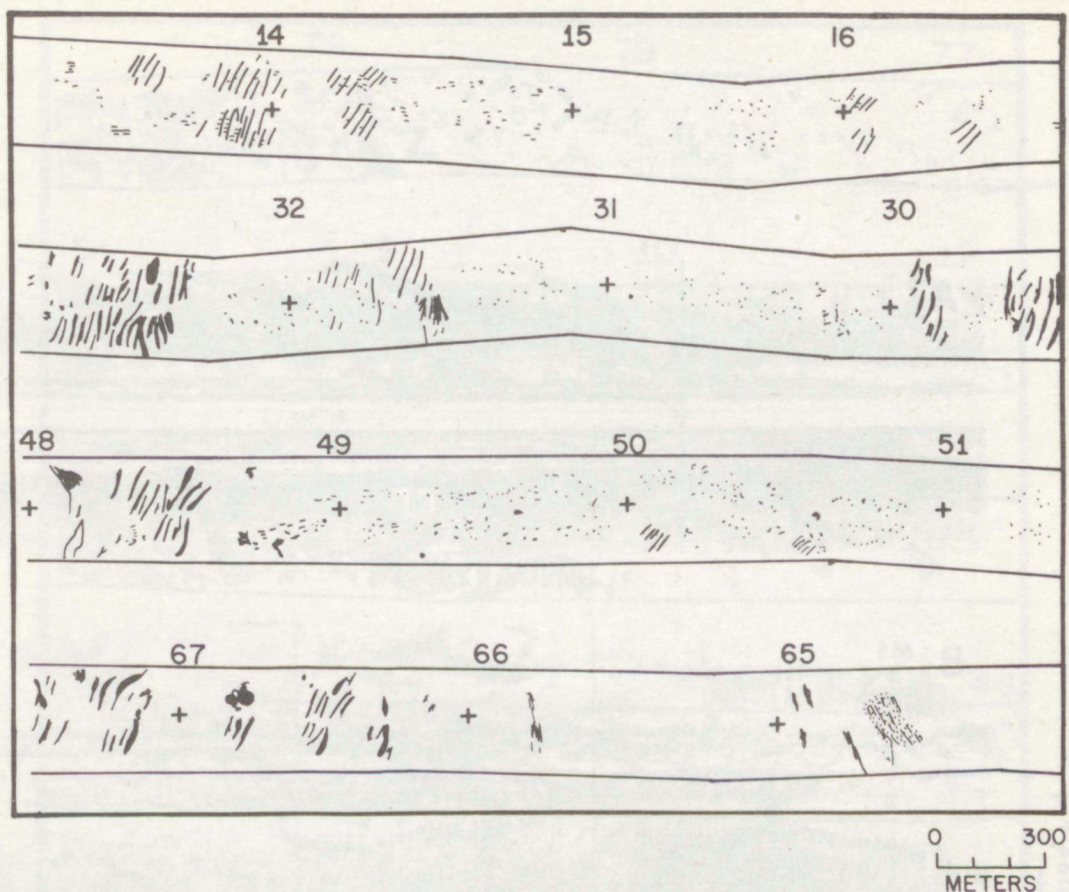 14 15 16
32 31 30
48 49 50 51
67 66 65
0 300
METERS